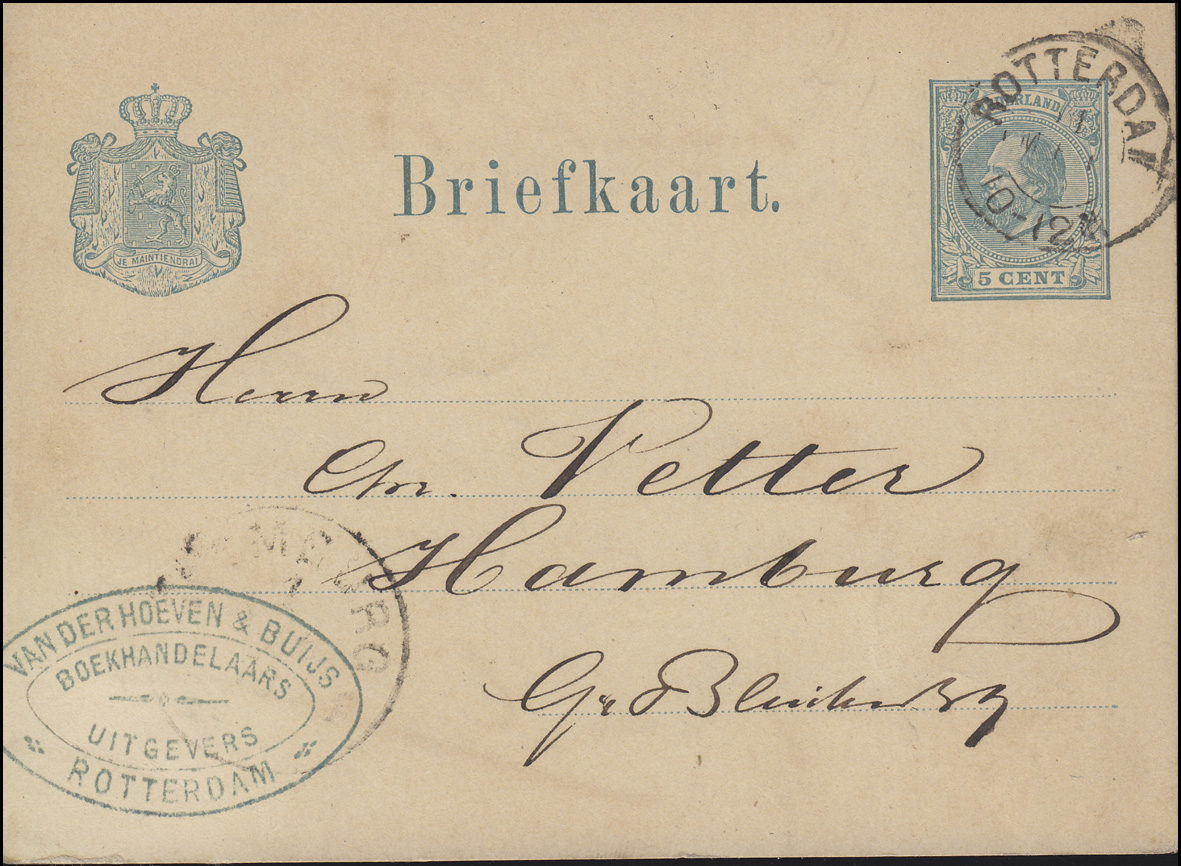 ROTTERDAM
10-12
NEDERLAND
5 CENT
JE MAINTIENDRAI
Briefkaart.
Herrn
Chr. Vetter
Hamburg
Gr
HAMBURG
VAN DER HOEVEN & BUIJS
BOEKHANDELAARS
UITGEVERS
ROTTERDAM